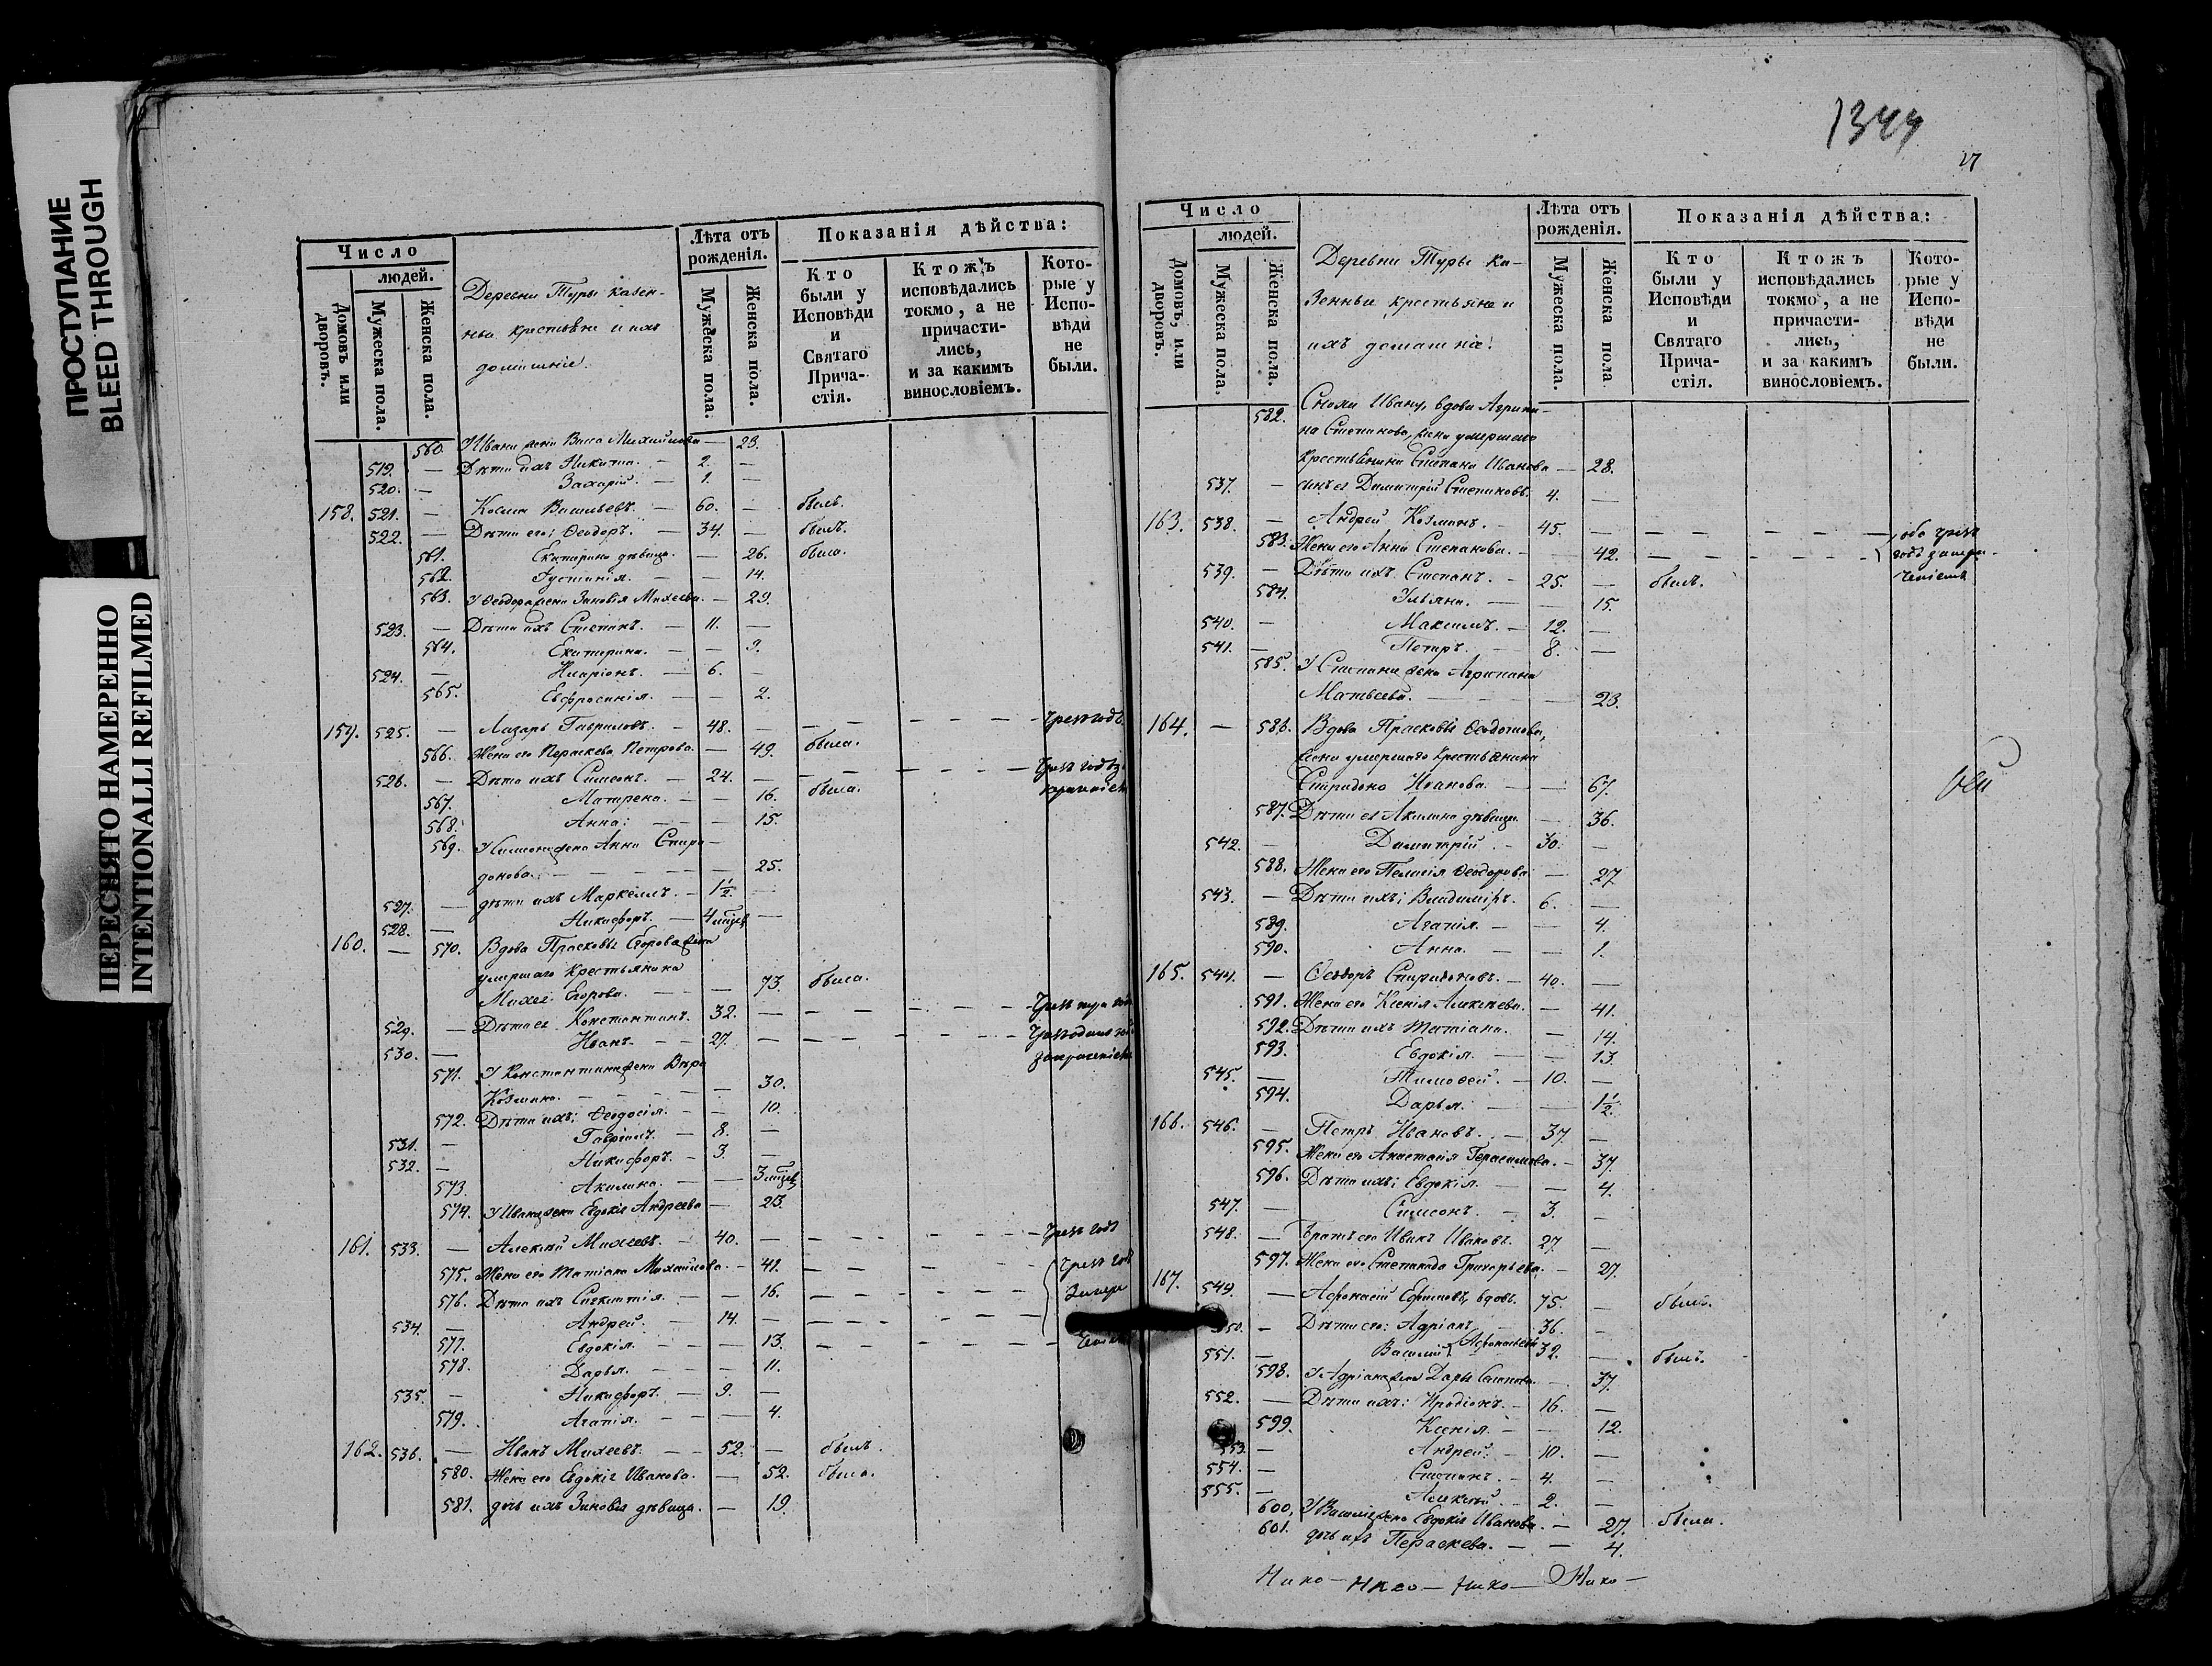 ПРОСТУПАНИЕ
BLEED THROUGH
ПЕРЕСНЯТО НАМЕРЕННО
INTENTIONALLI REFILMED
Число
людей.
Домовъ или дворовъ.
Мужеска пола.
Женска пола.
Деревни Туры казен-
ныи крестьяне и ихъ
домашніе.
Лѣта отъ рожденія.
Мужеска пола.
Женска пола.
Показанія дѣйства:
Кто были у Исповѣди и Святаго Прича-стія.
Ктожъ исповѣдались токмо, а не причасти-лись, и за какимъ винословіемъ.
Кото-рые у Испо-вѣди не были.
560. У Ивана жена Васса Михайлова — 23.
519. — Дѣти ихъ Никита. — 2. —
520. — Захарій. — 1. —
158. 521. — Косма Васильевъ. — 60. — былъ.
522. — Дѣти его: Ѳеодоръ. — 34. — былъ.
561. Екатерина дѣвица. — 26. была.
562. Іустинія. — — 14.
563. У Ѳеодора жена Зиновія Михеева. — 29.
523. — Дѣти ихъ Степанъ. — 11. —
564. Екатерина. — — 9.
524. — Иларіонъ. — 6. —
565. Евфросинія. — — 2.
159. 525. — Лазарь Гавриловъ. — 48. — — — — — — чрезъ годъ
566. Жена его Параскева Петрова. — 49. была.
526. — Дѣти ихъ Симеонъ. — 24. — — — — — — чрезъ годъ
567. Матрена. — — 16. была.
568. Анна: — — — 15.
569. У Симеона жена Анна Спири-
донова. — — — — — 25.
527. — дѣти ихъ Маркеллъ. — 1½. —
528. — Никифоръ. — 4 мѣсяц. —
160. — 570. Вдова Прасковья Егорова жена
умершаго крестьянина
Михея Егорова. — — — 73. была.
529. — Дѣти ея Константинъ. 32. — — — — — чрезъ три года
530. — Иванъ. — — 27. — — — — —
571. У Константина жена Вѣра
Козмина. — — — — — 30.
572. Дѣти ихъ: Ѳеодосія. — — 10.
531. — Гавріилъ. — 8. —
532. — Никифоръ. — 3. —
573. Акилина. — — 3 мѣсяц.
574. У Ивана жена Евдокія Андреева — 23.
161. 533. — Алексѣй Михеевъ. — 40. — — — — — — чрезъ годъ
575. Жена его Татіана Михайлова — 41. — — — — — чрезъ годъ
576. Дѣти ихъ Синклитія. — — 16. — — — — —
534. — Андрей. — 14. — — — — — —
577. Евдокія. — — — 13. — — — — —
578. Дарья. — — — 11.
535. — Никифоръ. — 9. —
579. Агапія. — — — 4.
162. 536. — Иванъ Михеевъ. — — 52. — былъ.
580. Жена его Евдокія Иванова. — 52. была.
581. дочь ихъ Зиновія дѣвица. — 19.
1344
27
Число
людей.
Домовъ, или дворовъ.
Мужеска пола.
Женска пола.
Деревни Туры ка-
зенныи крестьяне и
ихъ домашніе.
Лѣта отъ рожденія.
Мужеска пола.
Женска пола
Показанія дѣйства:
Кто были у Исповѣди и Святаго Прича-стія.
Ктожъ исповѣдались токмо, а не причасти-лись, и за какимъ винословіемъ.
Кото-рые у Испо-вѣди не были.
582. Сноха Ивану, вдова Агрипи-
на Степанова, жена умершаго
крестьянина Степана Иванова — 28.
537. — сынъ ея Димитрій Степановъ. 4. —
163. 538. — Андрей Козминъ. — 45. — — — — — —
583. Жена его Анна Степанова. — — 42. — — — — —
539. — Дѣти ихъ Степанъ. — 25. — былъ.
584. Ульяна. — — 15.
540. — Максимъ. — 12. —
541. — Петръ. — 8. —
585. У Степана жена Агрипина
Матвеева. — — — 23.
164. — 586. Вдова Прасковья Ѳеодотова,
жена умершаго крестьянина
Спиридона Иванова. — — 67.
587. Дѣти ея Акилина дѣвица. — 36.
542. — Димитрій. — 30. —
588. Жена его Пелагія Ѳеодорова — 27.
543. — Дѣти ихъ: Владиміръ. 6. —
589. Агапія. — — 4.
590. Анна. — — 1.
165. 544. — Ѳеодоръ Спиридоновъ. — 40. —
591. Жена его Ксенія Алексѣева. — 41.
592. Дѣти ихъ Татіана. — 14.
593. Евдокія. — — 13.
545. — Тимоѳей. — 10. —
594. Дарья. — — 1½.
166. 546. — Петръ Ивановъ. — 37. —
595. Жена его Анастасія Герасимова. — 37.
596. Дѣти ихъ: Евдокія. — — 4.
547. — Симеонъ. — 3. —
548. — Братъ его Иванъ Ивановъ. 27. —
597. Жена его Степанида Григорьева. — 27.
167. 549. — Афанасій Ефимовъ, вдовъ. 75. — былъ.
550. — Дѣти его: Адріанъ. — 36. —
551. — Василій Афанасьевы 32. — былъ.
598. У Адріана жена Дарья — 37.
552. — Дѣти ихъ: Иродіонъ. — 16. —
599. Ксенія. — — 12.
553. — Андрей. — 10. —
554. — Степанъ. — 4. —
555. — Алексѣй. — 2. —
600. У Василія жена Евдокія Иванова. — 27. была.
601. дочь ихъ Параскева. — — 4.